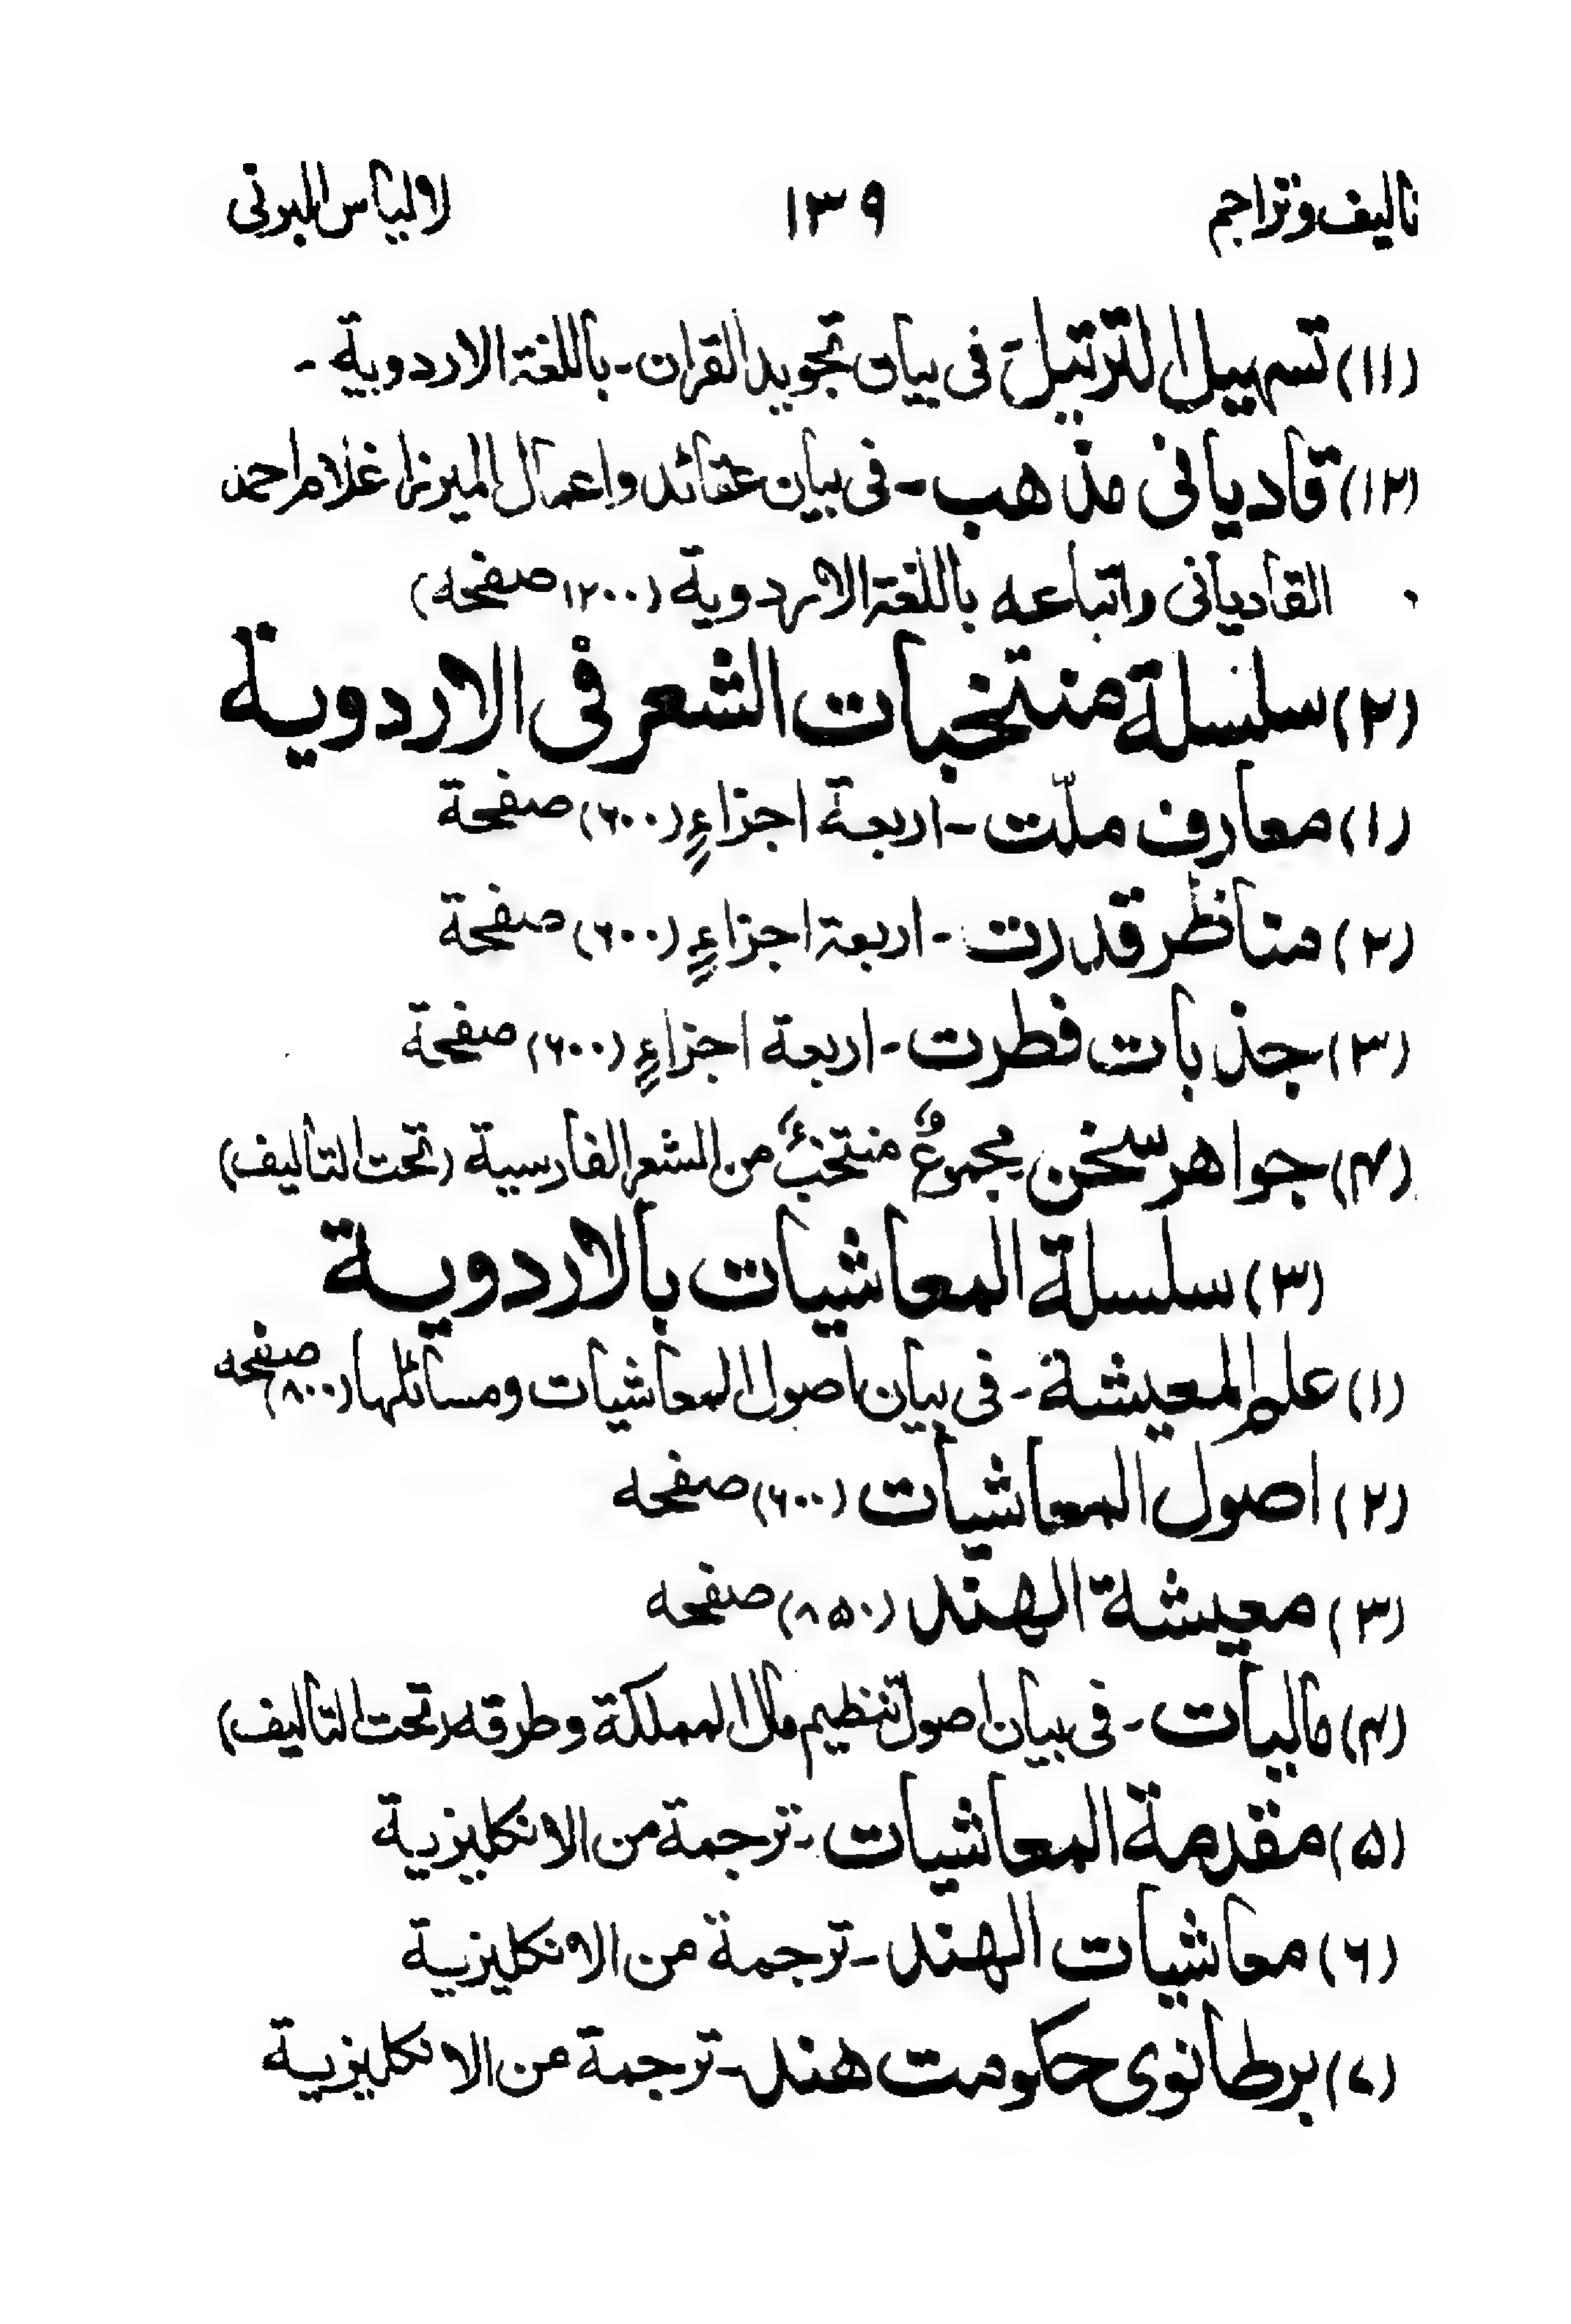 تالیف وتراجم ۱۳۹ لالیاس البرنی
(۱۱) تسہیل الترتیل فی بیان تجوید القران - باللغۃ الاردویۃ -
(۱۲) قادیانی مذھب - فی بیان عقائد واعمال المیرزا غلام احمد
القادیانی واتباعہ باللغۃ الاردویۃ (۱۲۰۰ صفحہ)
(۲) سلسلۃ منتخبات الشعر فی الاردویۃ
(۱) معارف ملّت - اربعۃ اجزاءٍ (۶۰۰) صفحۃ
(۲) مناظر قدرت - اربعۃ اجزاءٍ (۶۰۰) صفحۃ
(۳) جذبات فطرت - اربعۃ اجزاءٍ (۶۰۰) صفحۃ
(۴) جواھر سخن مجموعٌ منتخبٌ من الشعر الفارسیۃ (تحت التالیف)
(۳) سلسلۃ المعاشیات بالاردویۃ
(۱) علم المعیشۃ - فی بیان اصول المعاشیات ومسائلہا (۸۰۰) صفحہ
(۲) اصول المعاشیات (۶۰۰) صفحہ
(۳) معیشۃ الھند (۸۵۰) صفحہ
(۴) مالیات - فی بیان اصول تنظیم مال المملکۃ وطرقہ (تحت التالیف)
(۵) مقدمۃ المعاشیات - ترجمۃ من الانکلیزیۃ
(۶) معاشیات الھند - ترجمۃ من الانکلیزیۃ
(۷) برطانوی حکومت ھند - ترجمۃ من الانکلیزیۃ